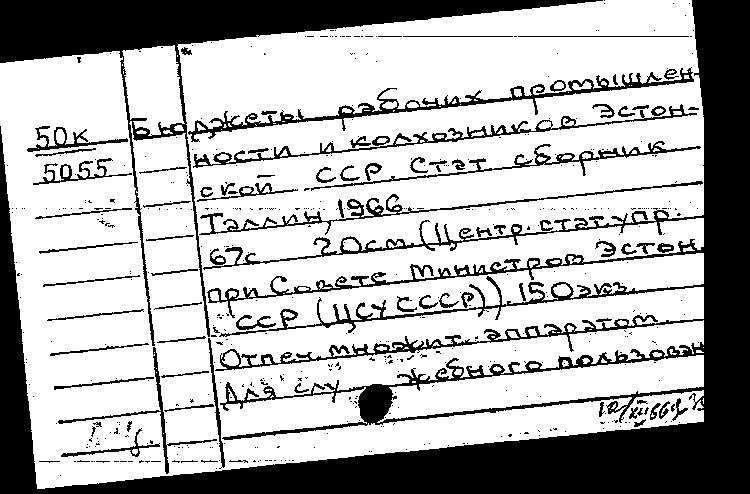 50к
5055
Бюджеты рабочих промышлен-
ности и колхозников Эстон=
ской ССР. Стат сборник
Таллин, 1966.
67с 20см. (Центр. стат. упр.
при Совете Министров Эстон.
ССР (ЦСУ СССР)). 150экз.
Отпеч. множит. аппаратом.
Для слу жебного пользован
12/XII 66г.